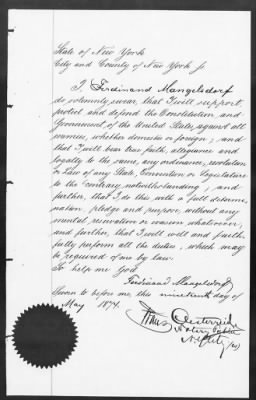 State of New York
City and County of New York ss
I, Ferdinand Mangelsdorf
do solemnly swear, that I will support,
protect and defend the Constitution and
Government of the United States, against all
enemies, whether domestic or foreign; and
that I will bear true faith, allegiance and
loyalty to the same, any ordinance, resolution
or Law of any State, Convention or Legislature
to the contrary notwithstanding; and
further, that I do this with a full determi-
nation, pledge and purpose, without any
mental reservation or evasion whatsoever;
and further, that I will well and faith-
fully perform all the duties, which may
be required of me by law.
So help me God
Ferdinand Mangelsdorf
Sworn to before me, this nineteenth day of
May 1874.
Oesterreich
Notary Public
N.Y. City